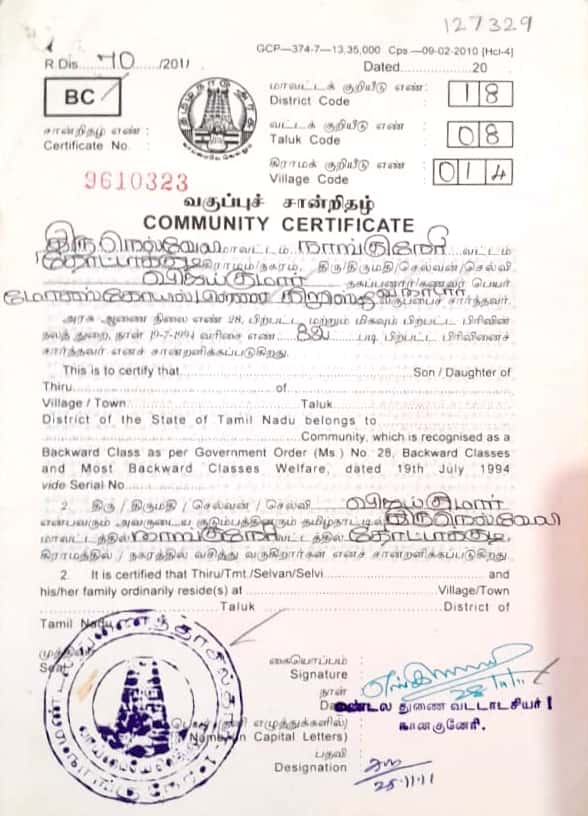 127329
GCP—374-7—13,35,000 Cps—09-02-2010 [Hcl-4]
R.Dis 70 /2011 Dated 20
BC
மாவட்டக் குறியீடு எண் :
District Code 18
வட்டக் குறியீடு எண் :
Taluk Code 08
கிராமக் குறியீடு எண் :
Village Code 014
சான்றிதழ் எண் :
Certificate No. :
9610323
வகுப்புச் சான்றிதழ்
COMMUNITY CERTIFICATE
திருநெல்வேலி மாவட்டம், நாங்குநேரி வட்டம்
தோட்டாக்குடி கிராமம்/நகரம், திரு/திருமதி/செல்வன்/செல்வி
விஜய்குமார் தகப்பனார்/கணவர் பெயர்
கிறிஸ்துவ நாடார் வகுப்பைச் சார்ந்தவர்.
அரசு ஆணை நிலை எண் 28, பிற்பட்ட மற்றும் மிகவும் பிற்பட்ட பிரிவின்
நலத் துறை, நாள் 19-7-1994 வரிசை எண் படி பிற்பட்ட பிரிவினைச்
சார்ந்தவர் எனச் சான்றளிக்கப்படுகிறது.
This is to certify that Son / Daughter of
Thiru of
Village / Town Taluk
District of the State of Tamil Nadu belongs to
Community, which is recognised as a
Backward Class as per Government Order (Ms.) No. 28, Backward Classes
and Most Backward Classes Welfare, dated 19th July 1994
vide Serial No.
2. திரு / திருமதி / செல்வன் / செல்வி விஜய்குமார்
என்பவரும் அவருடைய குடும்பத்தினரும் தமிழ்நாட்டில் திருநெல்வேலி
மாவட்டத்தில் நாங்குநேரி வட்டத்தில் தோட்டாக்குடி
கிராமத்தில் / நகரத்தில் வசித்து வருகிறார்கள் எனச் சான்றளிக்கப்படுகிறது.
2. It is certified that Thiru/Tmt./Selvan/Selvi and
his/her family ordinarily reside(s) at Village/Town
Taluk District of
Tamil Nadu
முத்திரை
Seal
கையொப்பம் :
Signature
28/11/11
நாள்
மண்டல துணை வட்டாட்சியர் 1
நான்குனேரி.
பெயர் (தனி எழுத்துக்களில்)
Name (in Capital Letters)
பதவி :
Designation
28-11-11